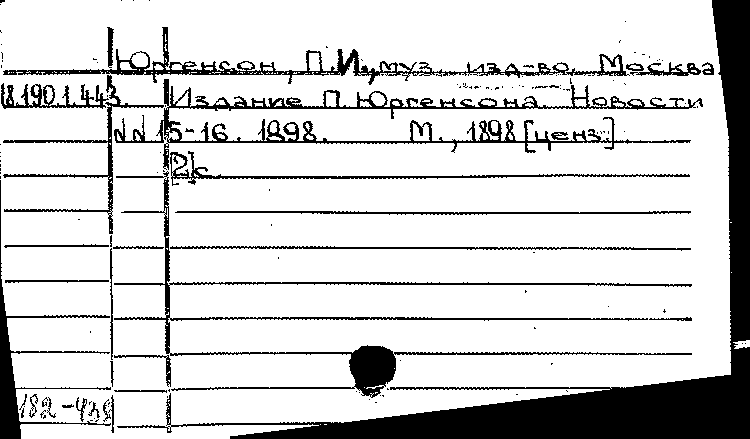 Юргенсон, П.И., муз. изд-во. Москва.
18.190.1.443. Издание П. Юргенсона. Новости
№№ 15-16. 1898. М., 1898 [ценз.]
[2]с.
182-439